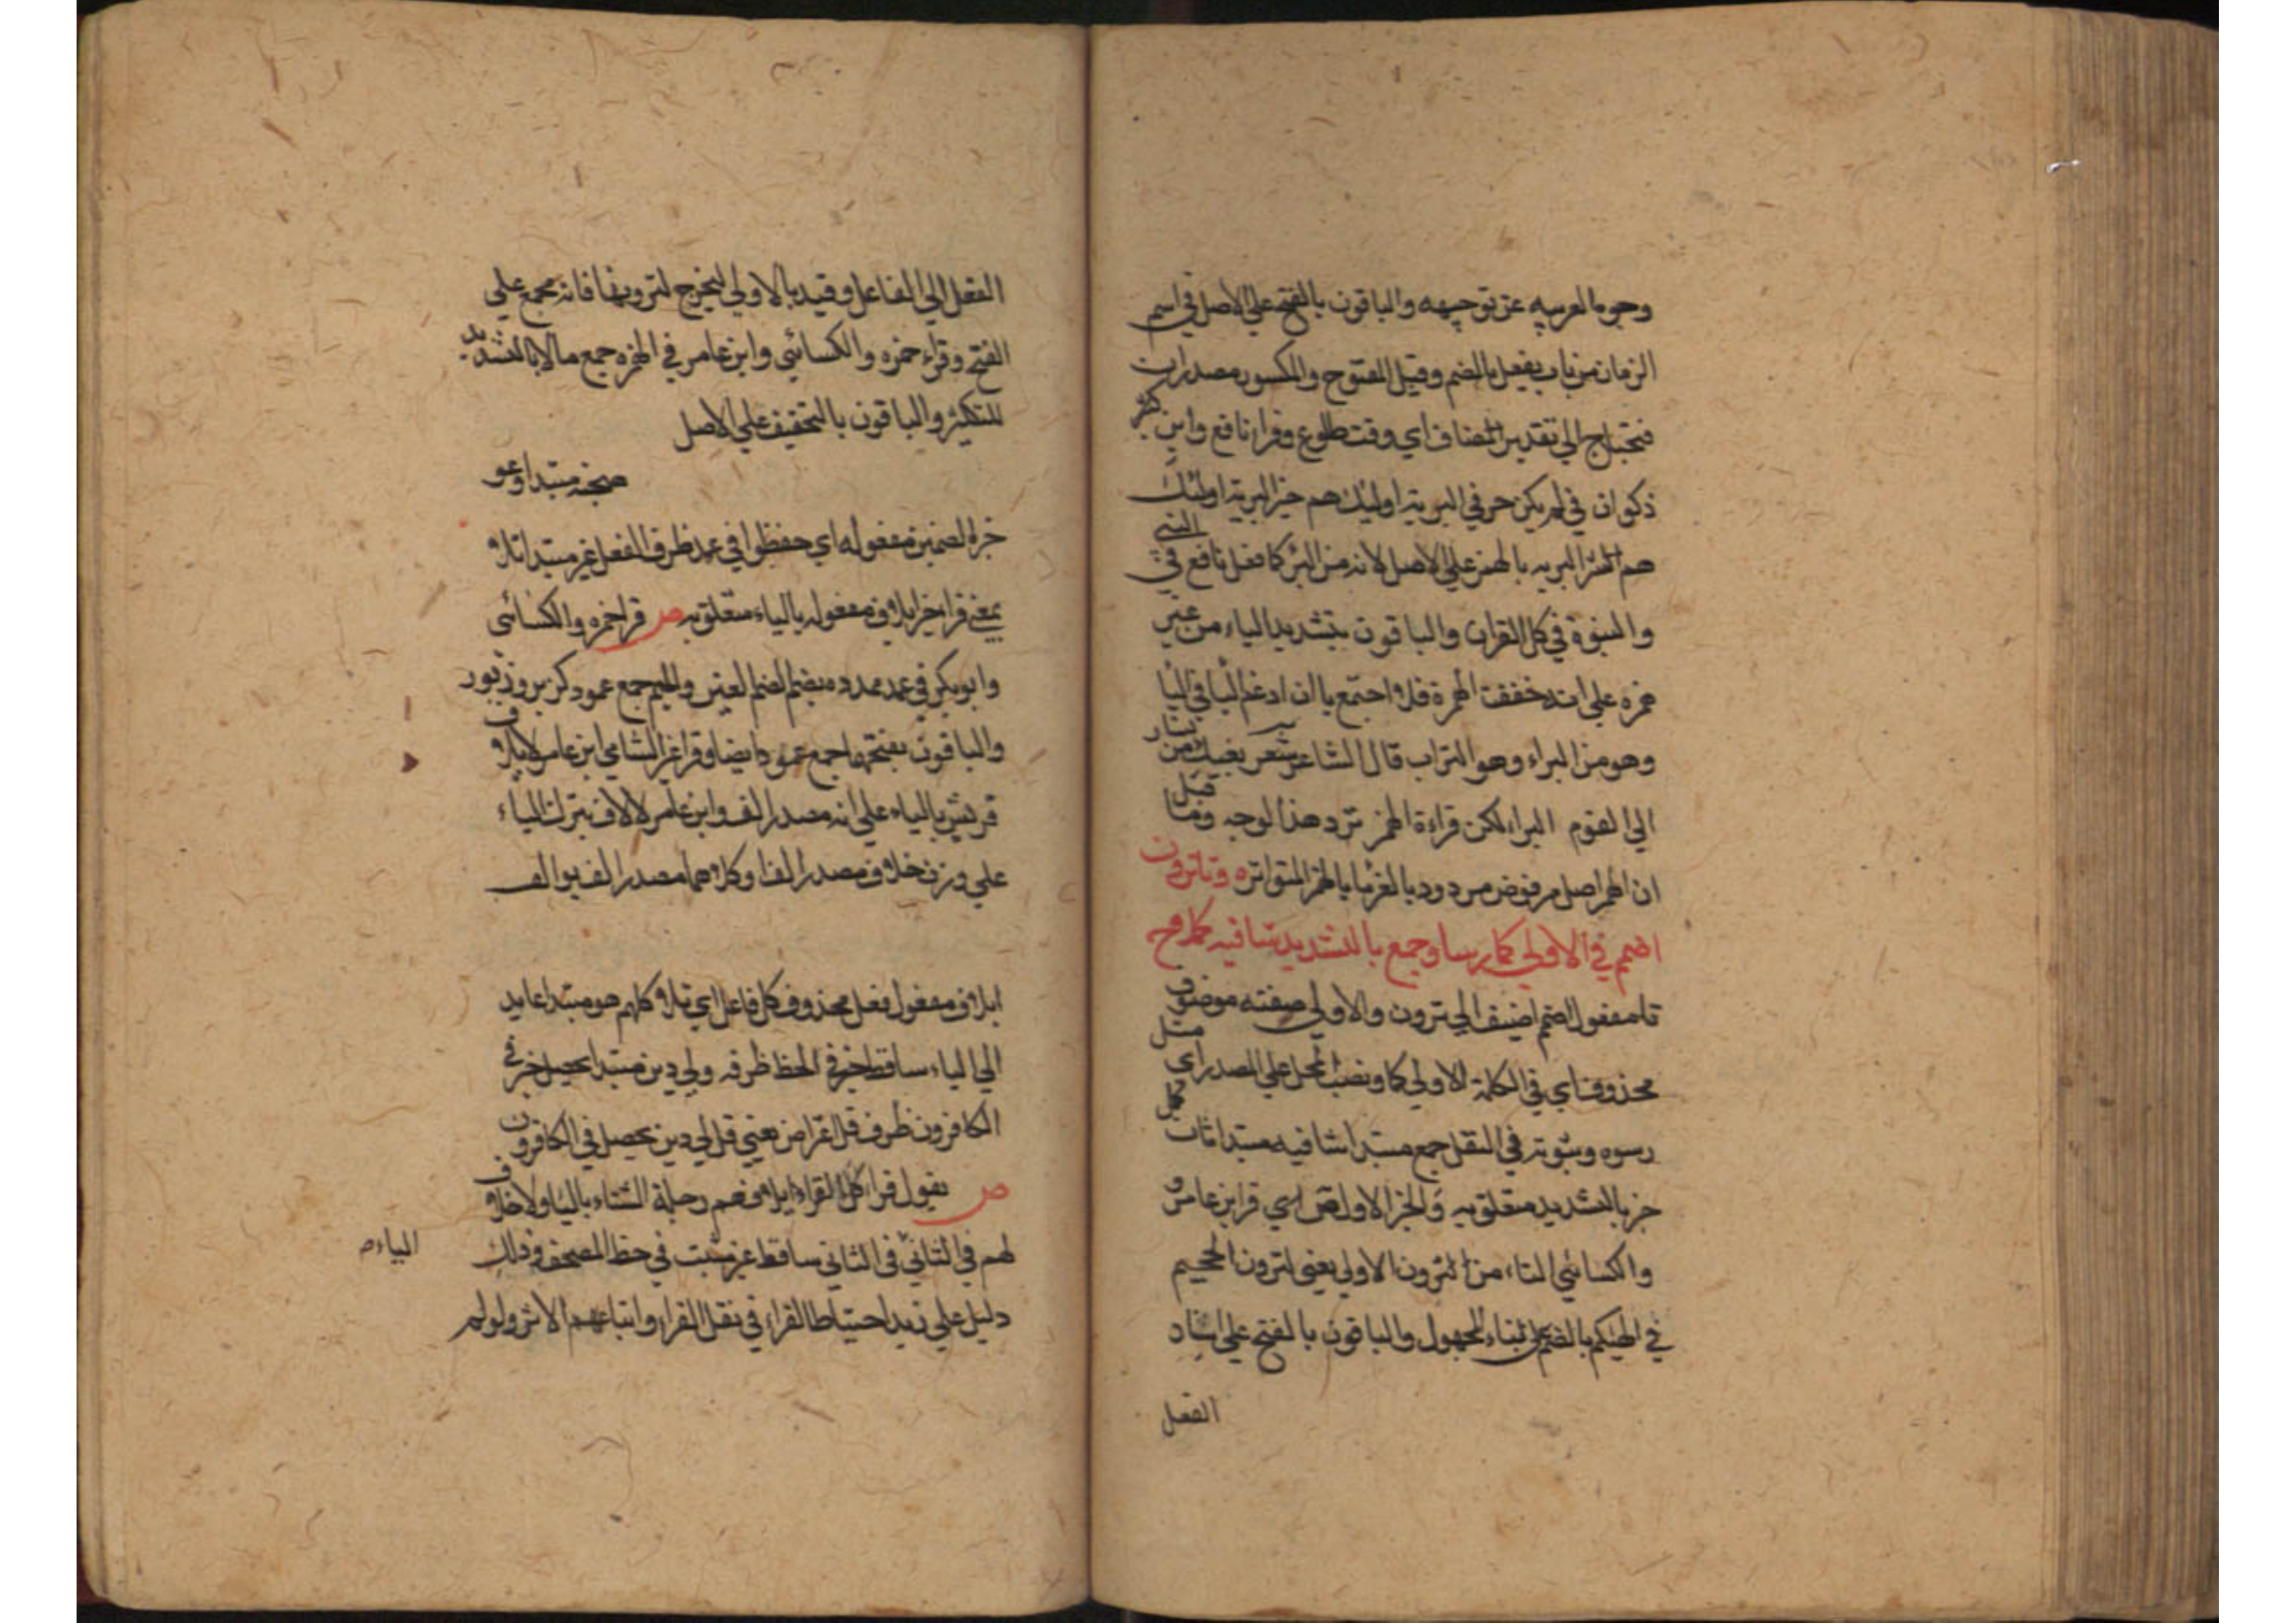 وجوه العربيه عن توجيهه والباقون بالفتح علي الاصل في اسم
الزمان من باب يفعل بالضم وقيل المفتوح والمكسور مصدران
فيحتاج الي تقدير المضاف اي وقت طلوع وقرا نافع وابن كثير
ذكوان في لم يكن حرفي البرية اوليك هم خير البرية اوليك
هم شر البريه بالهمز علي الاصل لانه من البرء كما فعل نافع في النبي
والنبوة في كل القران والباقون بتشديد الياء من غير
همزه علي انه خففت الهمزة فلما اجتمع ياان ادغم اليا في اليا
وهو من البراء وهو التراب قال الشاعر شعر بفيك من سار
الي القوم البراء لكن قراءة الهمز ترد هذا الوجه وما قيل
ان الهمز اصل مرفوض مردود بالهمز المتواتره وتاترون
اضمم في الاولي كما رسا وجمع بالتشديد شافيه كملا وح
تا مفعول اضمم اضيف الي ترون والاولي صفته موصوف
محذوف اي في الكلمة الاولي كما رسا نصب المحل علي المصدر اي مثل
رسوه وثبوته في النقل جمع مبتدا شافيه مبتدا ثان كمل
خبر بالتشديد متعلق به والخبر الاول ص اي قرا ابن عامر و
والكسائي التاء من لترون الاولي يعني لترون الجحيم
في الهيكم بالضم علي بناء المجهول والباقون بالفتح علي اسناد
الفعل
الفعل الي الفاعل وقيد بالاولي ليخرج لترونها فانه مجمع علي
الفتح وقراء حمزه والكسائي وابن عامر في الهمزه جمع مالا بالتشديد
للتكثير والباقون بالتخفيف علي الاصل
صحبة مبتدا وعو
خبره الضمين مفعوله اي حفظوا في عمد ظرف الفعل غير مبتدا تلا
بمعني قرا خبر ايلاف مفعوله بالياء متعلق به ص قرا حمزه والكسائي
وابو بكر في عمد ممدده بضم الضم العين والميم جمع عمود كزبر وزبور
والباقون بفتحهما جمع عمود ايضا وقرا غير الشامي ابن عامر لايلاف
قريش بالياء علي انه مصدر الف وابن عامر لالاف بترك الياء
علي وزن خلاف مصدر الفا وكلاهما مصدر الف يوالف
ايلاف مفعول فعل محذوف كل فاعل اي تلا كلهم هو مبتدا عايد
الي الياء ساقط خبره في الخط ظرفه ولي دين مبتدا يحصل خبر في
الكافرون ظرف قل الغرامن يعني قل لي دين يحصل في الكافرون
ص يقول قرا كل القراء ايلافهم رحلة الشتاء باليا ولا خلاف
لهم في الثاني في الثاني ساقط غير مثبت في خط المصحف وذلك
الياء ص
دليل علي زيد احتياط القراء في نقل القراء واتباعهم الاثر ولو لم